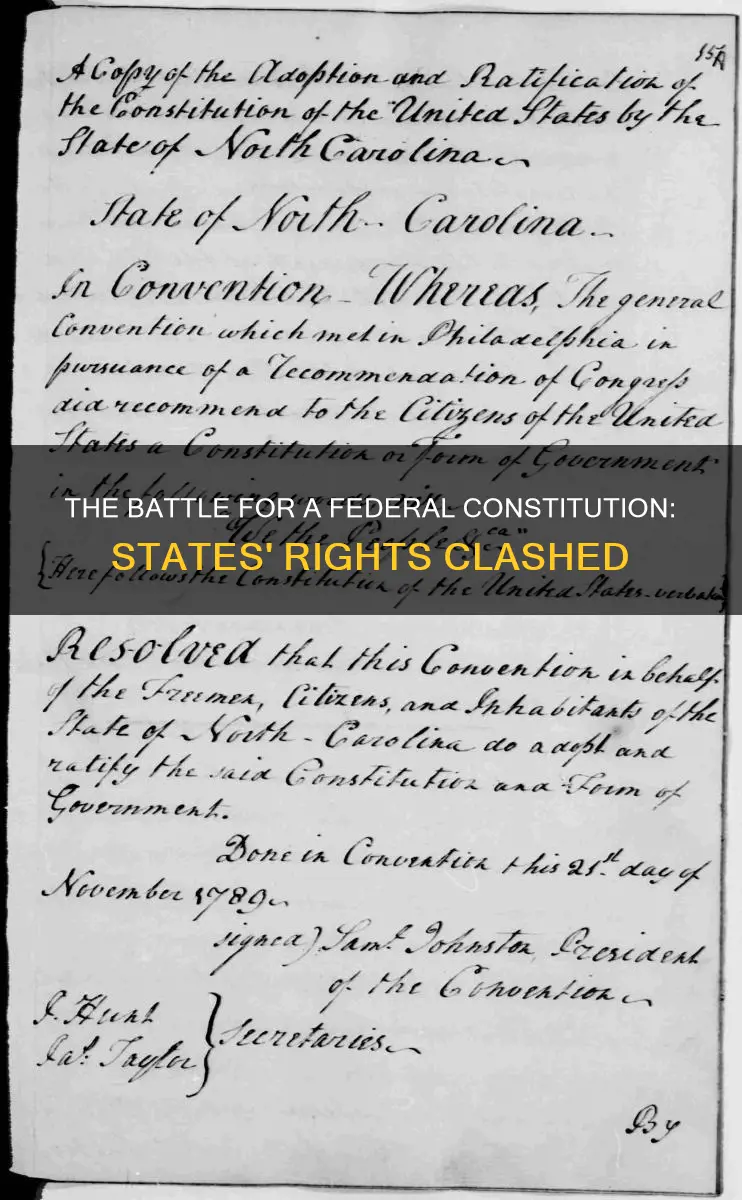 A Copy of the Adoption and Ratification of
the Constitution of the United States by the
State of North Carolina
State of North Carolina
In Convention Whereas, The general
Convention which met in Philadelphia in
pursuance of a Recommendation of Congress
did recommend to the Citizens of the United
States a Constitution or Form of Government
in the following words
THE BATTLE FOR A FEDERAL CONSTITUTION:
We the People &ca"
STATES' RIGHTS CLASHED
{Here follows the Constitution of the United States verbatim}
Resolved that this Convention in behalf
of the Freemen, Citizens, and Inhabitants of the
State of North-Carolina do adopt and
ratify the said Constitution and Form of
Government.
Done in Convention this 21st day of
November 1789
signed) Saml Johnston, President
of the Convention
J. Hunt
Jas. Taylor } Secretaries
By